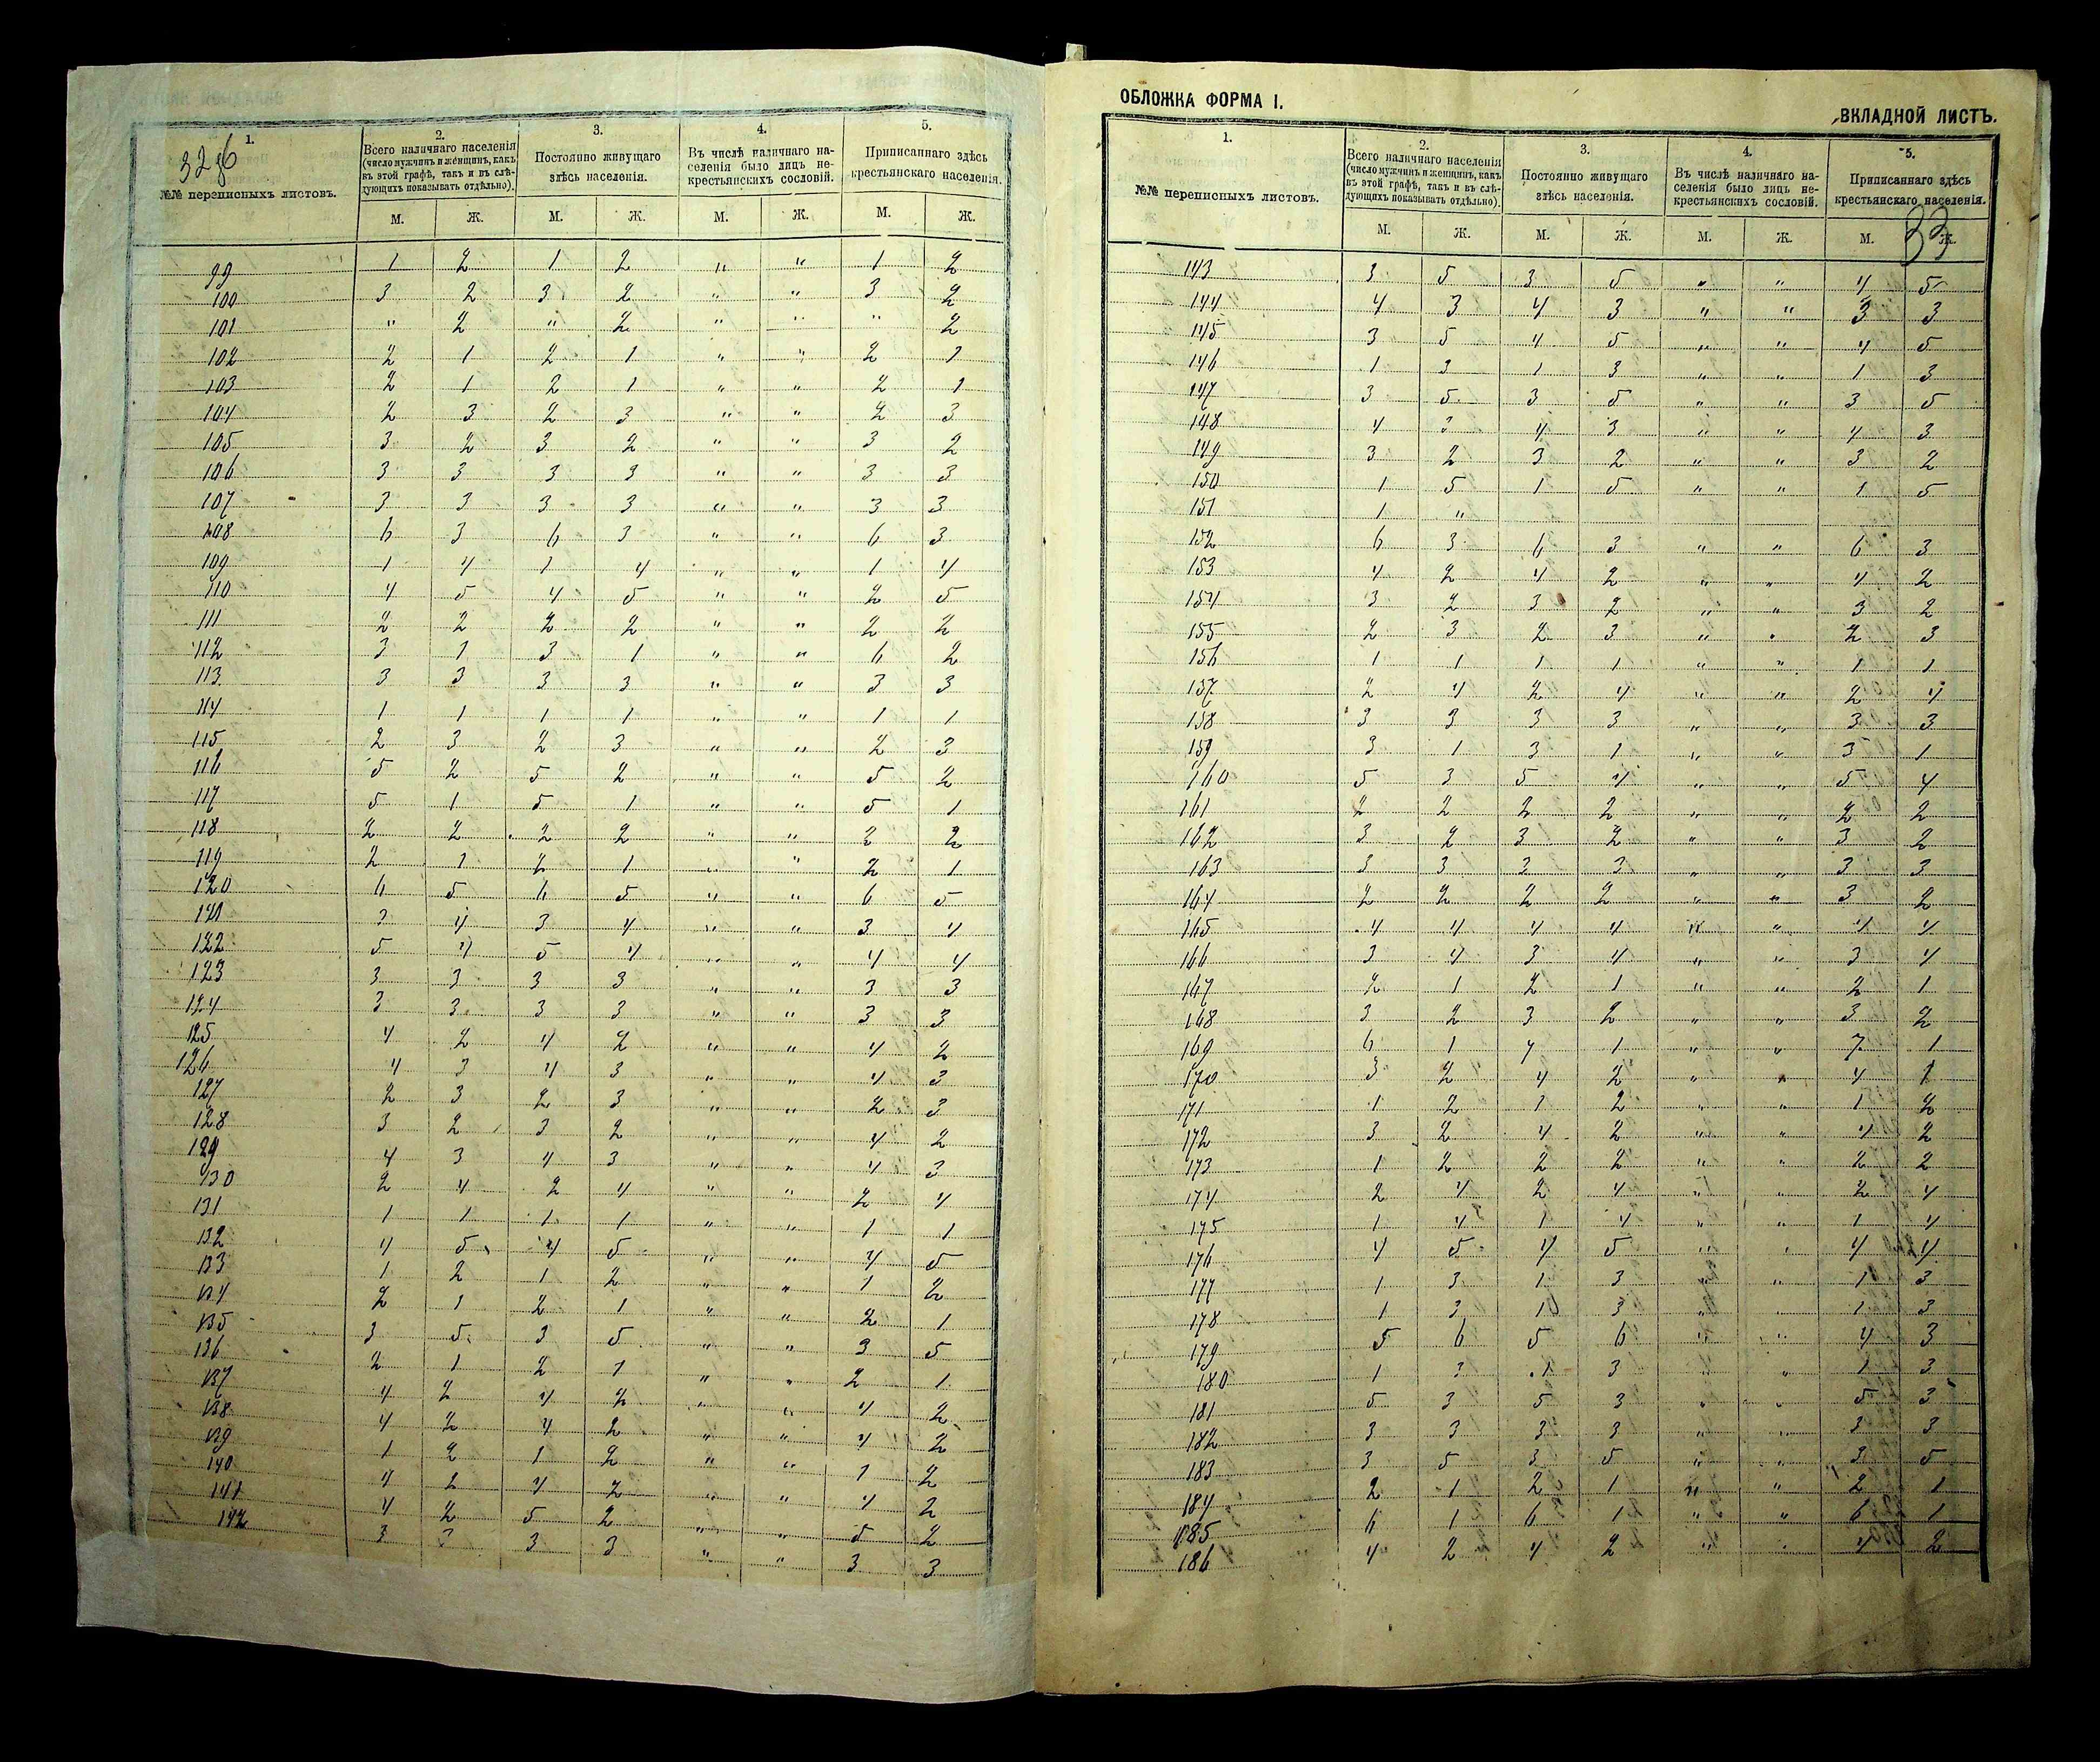 32 об
1. 2. 3. 4. 5.
№№ переписныхъ листовъ.
Всего наличнаго населенія (число мужчинъ и женщинъ, какъ въ этой графѣ, такъ и въ слѣдующихъ показывать отдѣльно).
Постоянно живущаго здѣсь населенія.
Въ числѣ наличнаго населенія было лицъ некрестьянскихъ сословій.
Приписаннаго здѣсь крестьянскаго населенія.
М. Ж. М. Ж. М. Ж. М. Ж.
99 1 2 1 2 " " 1 2
100 3 2 3 2 " " 3 2
101 " 2 " 2 " " " 2
102 2 1 2 1 " " 2 1
103 2 1 2 1 " " 2 1
104 2 3 2 3 " " 2 3
105 3 2 3 2 " " 3 2
106 3 3 3 3 " " 3 3
107 3 3 3 3 " " 3 3
108 6 3 6 3 " " 6 3
109 1 4 1 4 " " 1 4
110 4 5 4 5 " " 2 5
111 2 2 2 2 " " 2 2
112 3 1 3 1 " " 6 2
113 3 3 3 3 " " 3 3
114 1 1 1 1 " " 1 1
115 2 3 2 3 " " 2 3
116 5 2 5 2 " " 5 2
117 5 1 5 1 " " 5 1
118 2 2 2 2 " " 2 2
119 2 1 2 1 " " 2 1
120 6 5 6 5 " " 6 5
121 3 4 3 4 " " 3 4
122 5 4 5 4 " " 4 4
123 3 3 3 3 " " 3 3
124 3 3 3 3 " " 3 3
125 4 2 4 2 " " 4 2
126 4 3 4 3 " " 4 3
127 2 3 2 3 " " 2 3
128 3 2 3 2 " " 4 2
129 4 3 4 3 " " 4 3
130 2 4 2 4 " " 2 4
131 1 1 1 1 " " 1 1
132 4 5 4 5 " " 4 5
133 1 2 1 2 " " 1 2
134 2 1 2 1 " " 2 1
135 3 5 3 5 " " 3 5
136 2 1 2 1 " " 2 1
137 4 2 4 2 " " 4 2
138 4 2 4 2 " " 4 2
139 1 2 1 2 " " 1 2
140 4 2 4 2 " " 4 2
141 4 2 5 2 " " 5 2
142 3 3 3 3 " " 3 3
ОБЛОЖКА ФОРМА I.
ВКЛАДНОЙ ЛИСТЪ.
33
1. 2. 3. 4. 5.
№№ переписныхъ листовъ.
Всего наличнаго населенія (число мужчинъ и женщинъ, какъ въ этой графѣ, такъ и въ слѣдующихъ показывать отдѣльно).
Постоянно живущаго здѣсь населенія.
Въ числѣ наличнаго населенія было лицъ некрестьянскихъ сословій.
Приписаннаго здѣсь крестьянскаго населенія.
М. Ж. М. Ж. М. Ж. М. Ж.
143 3 5 3 5 " " 4 5
144 4 3 4 3 " " 3 3
145 3 5 4 5 " " 4 5
146 1 3 1 3 " " 1 3
147 3 5 3 5 " " 3 5
148 4 3 4 3 " " 4 3
149 3 2 3 2 " " 3 2
150 1 5 1 5 " " 1 5
151 1 "
152 6 3 6 3 " " 6 3
153 4 2 4 2 " " 4 2
154 3 2 3 2 " " 3 2
155 2 3 2 3 " " 2 3
156 1 1 1 1 " " 1 1
157 2 4 2 4 " " 2 4
158 3 3 3 3 " " 3 3
159 3 1 3 1 " " 3 1
160 5 3 5 4 " " 5 4
161 2 2 2 2 " " 2 2
162 3 2 3 2 " " 3 2
163 3 3 3 3 " " 3 3
164 2 2 2 2 " " 3 2
165 4 4 4 4 " " 4 4
166 3 4 3 4 " " 3 4
167 2 1 2 1 " " 2 1
168 3 2 3 2 " " 3 2
169 6 1 7 1 " " 7 1
170 3 2 4 2 " " 4 1
171 1 2 1 2 " " 1 2
172 3 2 4 2 " " 4 2
173 1 2 2 2 " " 2 2
174 2 4 2 4 " " 2 4
175 1 4 1 4 " " 1 4
176 4 5 4 5 " " 4 4
177 1 3 1 3 " " 1 3
178 1 3 1 3 " " 1 3
179 5 6 5 6 " " 4 3
180 1 3 1 3 " " 1 3
181 5 3 5 3 " " 5 3
182 3 3 3 3 " " 3 3
183 3 5 3 5 " " 3 5
184 2 1 2 1 " " 2 1
185 6 1 6 1 " " 6 1
186 4 2 4 2 " " 4 2